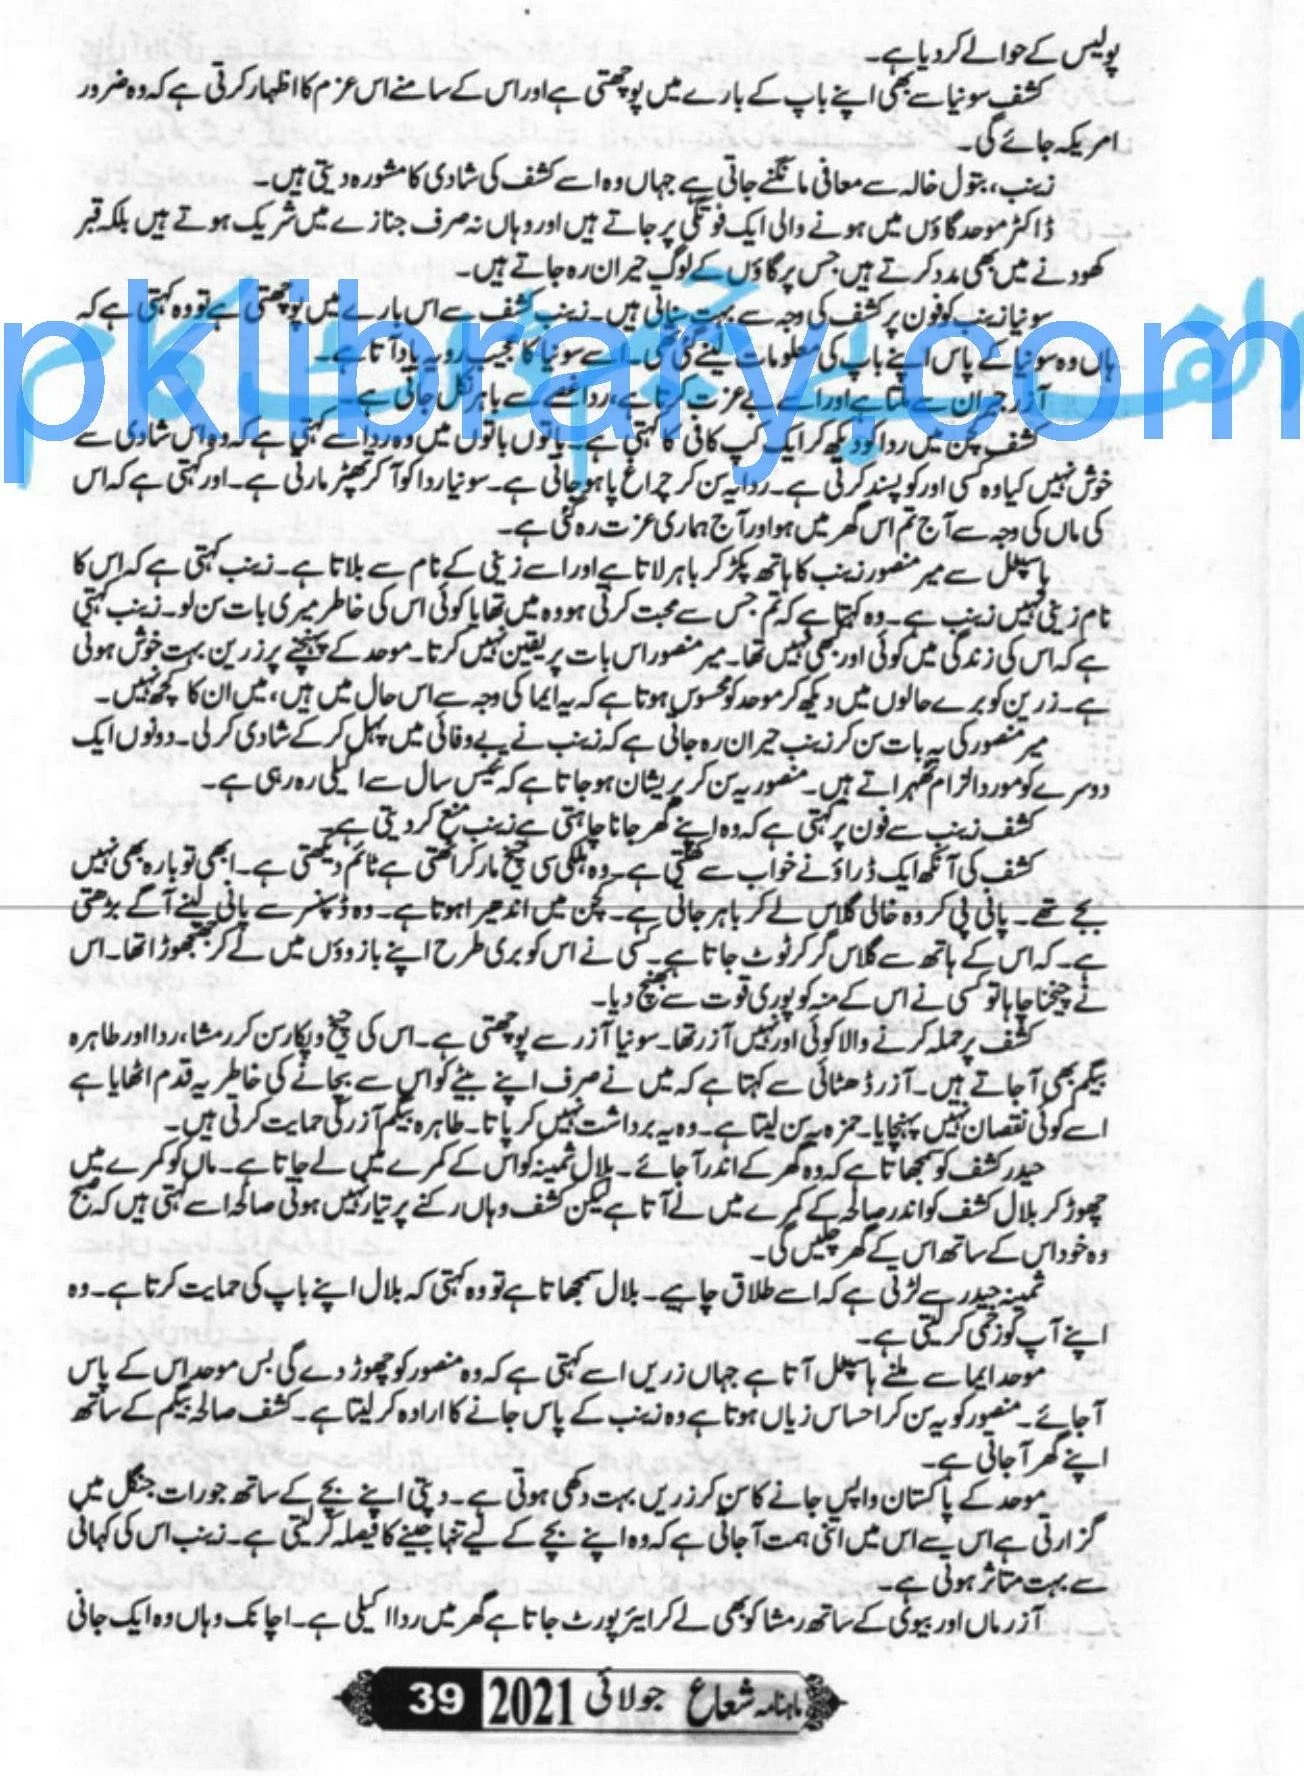 پولیس کے حوالے کر دیا ہے۔
کشف سونیا سے بھی اپنے باپ کے بارے میں پوچھتی ہے اور اس کے سامنے اس عزم کا اظہار کرتی ہے کہ وہ ضرور
امریکہ جائے گی۔
زینب، بتول خالہ سے معافی مانگنے جاتی ہے جہاں وہ اسے کشف کی شادی کا مشورہ دیتی ہیں۔
ڈاکٹر موحد گاؤں میں ہونے والی ایک فوتگی پر جاتے ہیں اور وہاں نہ صرف جنازے میں شریک ہوتے ہیں بلکہ قبر
کھودنے میں بھی مدد کرتے ہیں جس پر گاؤں کے لوگ حیران رہ جاتے ہیں۔
سونیا زینب کو فون پر کشف کی وجہ سے بہت سناتی ہیں۔ زینب کشف سے اس بارے میں پوچھتی ہے تو وہ کہتی ہے کہ
ہاں وہ سونیا کے پاس اپنے باپ کی معلومات لینے گئی تھی۔ اسے سونیا کا عجیب رویہ یاد آتا ہے۔
آزر جبران سے ملتا ہے اور اسے بے عزت کرتا ہے، ردا غصے سے باہر نکل جاتی ہے۔
کشف کچن میں ردا کو دیکھ کر ایک کپ کافی کا کہتی ہے۔ باتوں باتوں میں وہ ردا سے کہتی ہے کہ وہ اس شادی سے
خوش نہیں کیا وہ کسی اور کو پسند کرتی ہے۔ ردا یہ سن کر چراغ پا ہو جاتی ہے۔ سونیا ردا کو آ کر تھپڑ مارتی ہے۔ اور کہتی ہے کہ اس
کی ماں کی وجہ سے آج تم اس گھر میں ہو اور آج ہماری عزت رہ گئی ہے۔
ہاسپٹل سے میر منصور زینب کا ہاتھ پکڑ کر باہر لاتا ہے اور اسے زینی کے نام سے بلاتا ہے۔ زینب کہتی ہے کہ اس کا
نام زینی نہیں زینب ہے۔ وہ کہتا ہے کہ تم جس سے محبت کرتی ہو وہ میں تھا یا کوئی اس کی خاطر میری بات سن لو۔ زینب کہتی
ہے کہ اس کی زندگی میں کوئی اور بھی نہیں تھا۔ میر منصور اس بات پر یقین نہیں کرتا۔ موحد کے پہنچنے پر زرین بہت خوش ہوتی
ہے۔ زرین کو برے حالوں میں دیکھ کر موحد کو محسوس ہوتا ہے کہ یہ ایما کی وجہ سے اس حال میں ہیں، میں ان کا کچھ نہیں۔
میر منصور کی یہ بات سن کر زینب حیران رہ جاتی ہے کہ زینب نے بے وفائی میں پہل کر کے شادی کر لی۔ دونوں ایک
دوسرے کو مورد الزام ٹھہراتے ہیں۔ منصور یہ سن کر پریشان ہو جاتا ہے کہ تئیس سال سے اکیلی رہ رہی ہے۔
کشف زینب سے فون پر کہتی ہے کہ وہ اپنے گھر جانا چاہتی ہے زینب منع کر دیتی ہے۔
کشف کی آنکھ ایک ڈراؤنے خواب سے کھلتی ہے۔ وہ ہلکی سی چیخ مار کر اٹھتی ہے ٹائم دیکھتی ہے۔ ابھی تو بارہ بھی نہیں
بجے تھے۔ پانی پی کر وہ خالی گلاس لے کر باہر جاتی ہے۔ کچن میں اندھیرا ہوتا ہے۔ وہ ڈسپنسر سے پانی لینے آگے بڑھتی
ہے۔ کہ اس کے ہاتھ سے گلاس گر کر ٹوٹ جاتا ہے۔ کسی نے اس کو بری طرح اپنے بازوؤں میں لے کر جھنجھوڑا تھا۔ اس
نے چیخنا چاہا تو کسی نے اس کے منہ کو پوری قوت سے بھینچ دیا۔
کشف پر حملہ کرنے والا کوئی اور نہیں آزر تھا۔ سونیا آزر سے پوچھتی ہے۔ اس کی چیخ و پکار سن کر رمشا، ردا اور طاہرہ
بیگم بھی آ جاتے ہیں۔ آزر ڈھٹائی سے کہتا ہے کہ میں نے صرف اپنے بیٹے کو اس سے بچانے کی خاطر یہ قدم اٹھایا ہے
اسے کوئی نقصان نہیں پہنچایا۔ حمزہ یہ سن لیتا ہے۔ وہ یہ برداشت نہیں کر پاتا۔ طاہرہ بیگم آزر کی حمایت کرتی ہیں۔
حیدر کشف کو سمجھاتا ہے کہ وہ گھر کے اندر آ جائے۔ بلال ثمینہ کو اس کے کمرے میں لے جاتا ہے۔ ماں کو کمرے میں
چھوڑ کر بلال کشف کو اندر صالحہ کے کمرے میں لے آتا ہے لیکن کشف وہاں رکنے پر تیار نہیں ہوتی صالحہ اسے کہتی ہیں کہ صبح
وہ خود اس کے ساتھ اس کے گھر چلیں گی۔
ثمینہ حیدر سے لڑتی ہے کہ اسے طلاق چاہیے۔ بلال سمجھاتا ہے تو وہ کہتی کہ بلال اپنے باپ کی حمایت کرتا ہے۔ وہ
اپنے آپ کو زخمی کر لیتی ہے۔
موحد ایما سے ملنے ہاسپٹل آتا ہے جہاں زریں اسے کہتی ہے کہ وہ منصور کو چھوڑ دے گی بس موحد اس کے پاس
آ جائے۔ منصور کو یہ سن کر احساس زیاں ہوتا ہے وہ زینب کے پاس جانے کا ارادہ کر لیتا ہے۔ کشف صالحہ بیگم کے ساتھ
اپنے گھر آ جاتی ہے۔
موحد کے پاکستان واپس جانے کا سن کر زریں بہت دکھی ہوتی ہے۔ دیتی اپنے بچے کے ساتھ جو رات جنگل میں
گزارتی ہے اس سے اس میں اتنی ہمت آ جاتی ہے کہ وہ اپنے بچے کے لیے تنہا جینے کا فیصلہ کر لیتی ہے۔ زینب اس کی کہانی
سے بہت متاثر ہوتی ہے۔
آزر ماں اور بیوی کے ساتھ رمشا کو بھی لے کر ایئرپورٹ جاتا ہے گھر میں ردا اکیلی ہے۔ اچانک وہاں وہ ایک جانی
pklibrary.com
ماہنامہ شعاع جولائی 2021 39